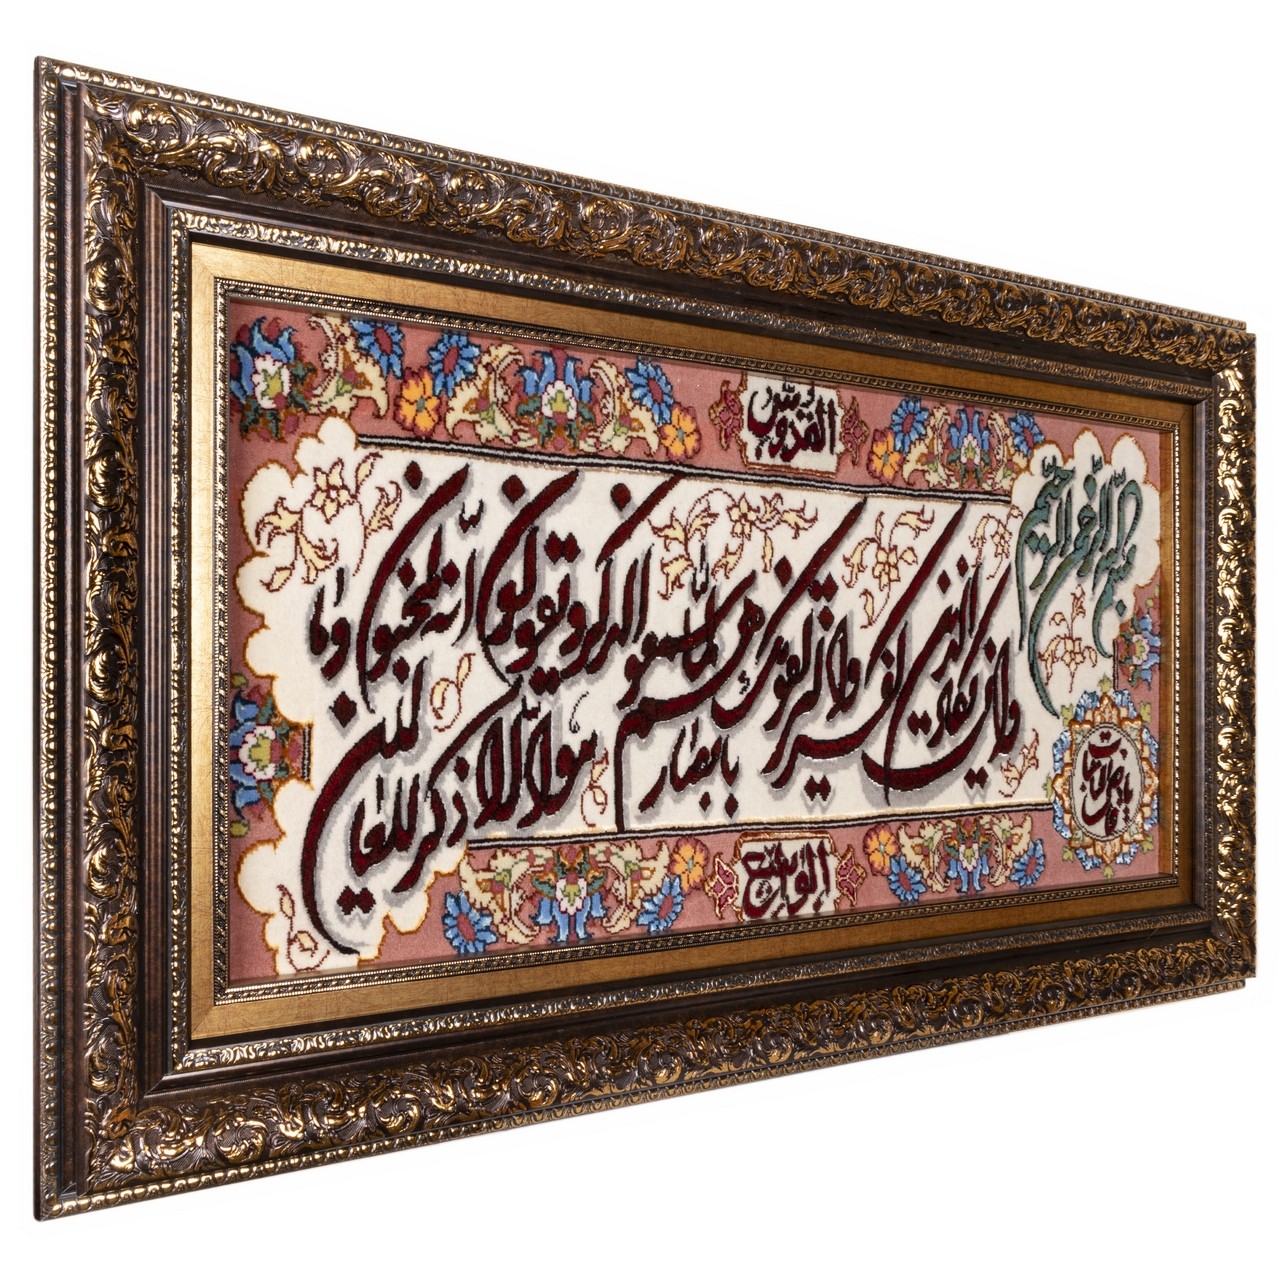 القدوس
بسم الله الرحمن الرحیم
وان یکاد الذین کفروا لیزلقونک
بابصارهم لما سمعوا الذکر ویقولون انه لمجنون وما
هو الا ذکر للعالمین
یا قاضی الحاجات